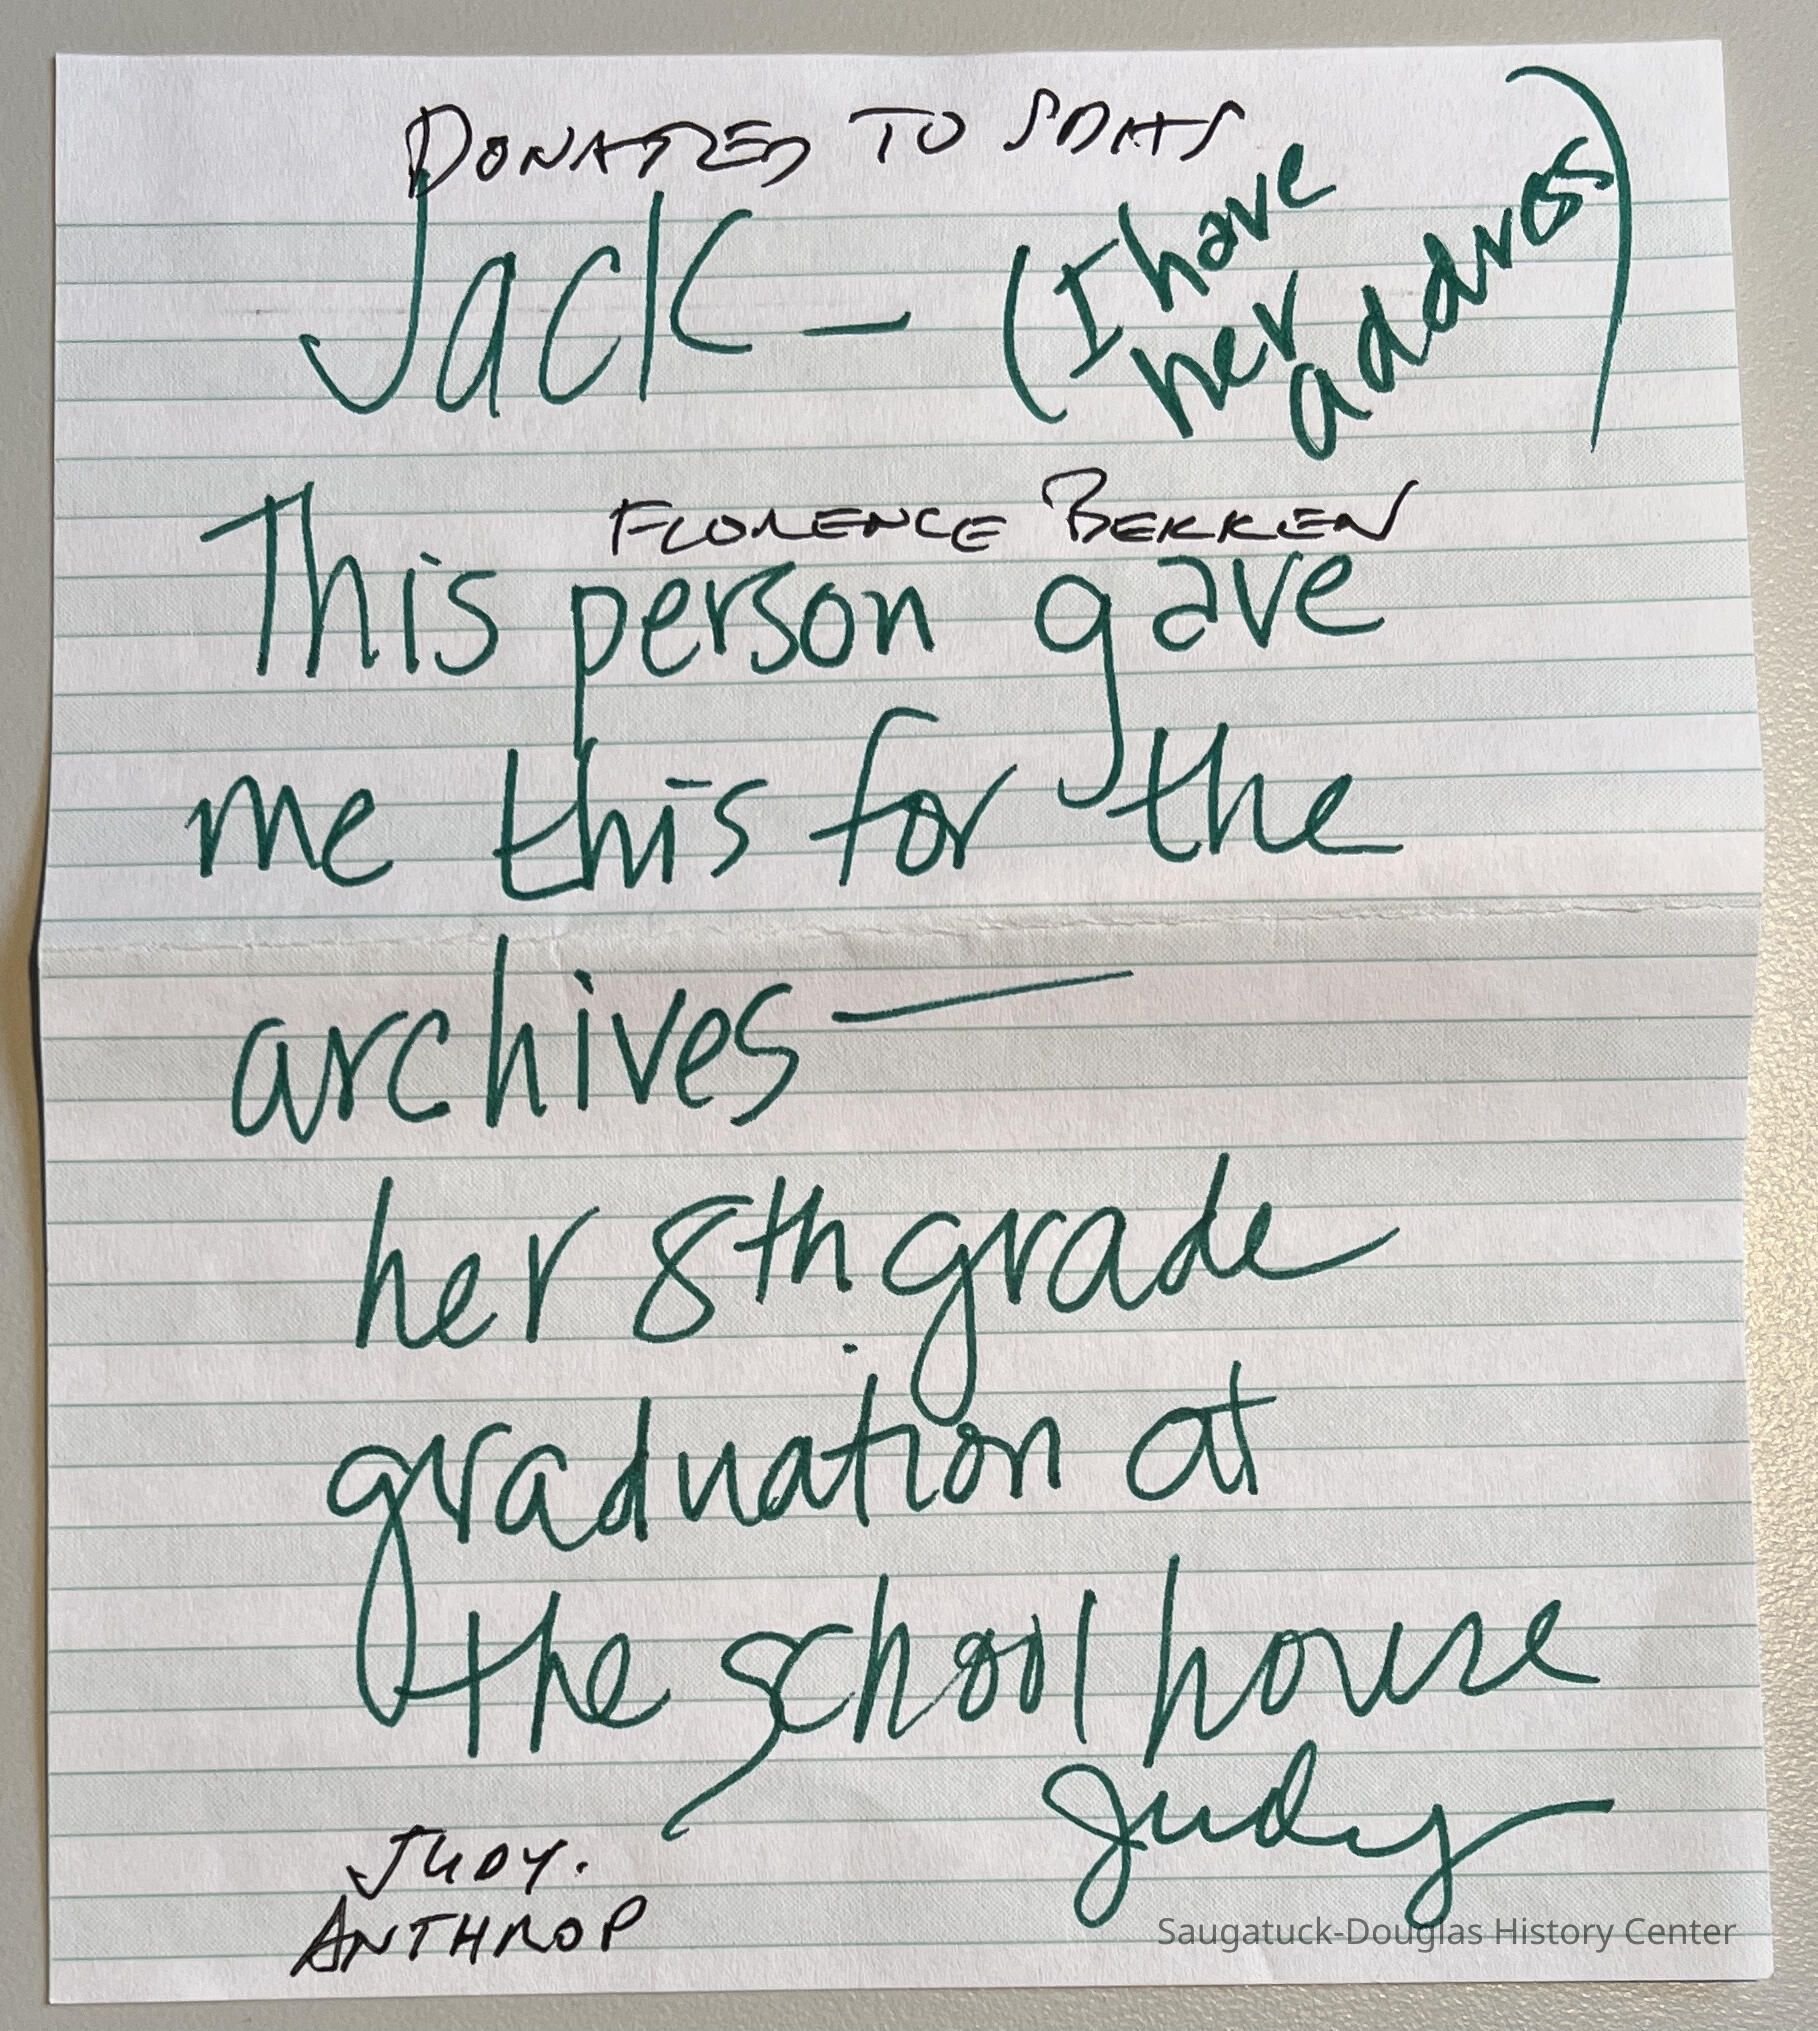 DONATED TO SDHS
Jack — (I have
her
address)
FLORENCE BEKKEN
This person gave
me this for the
archives —
her 8th grade
graduation at
the school house
Judy
JUDY.
ANTHROP
Saugatuck-Douglas History Center